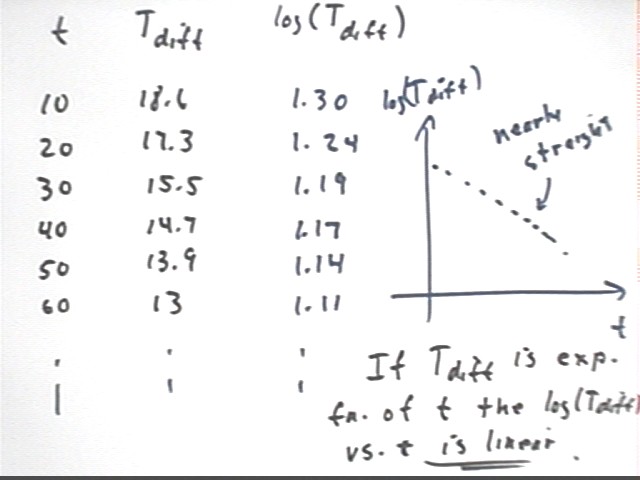 t T_diff log(T_diff)
10 18.6 1.30
20 17.3 1.24
30 15.5 1.19
40 14.7 1.17
50 13.9 1.14
60 13 1.11
log(T_diff)
nearly
straight
t
If T_diff is exp.
fn. of t the log(T_diff)
vs. t is linear.